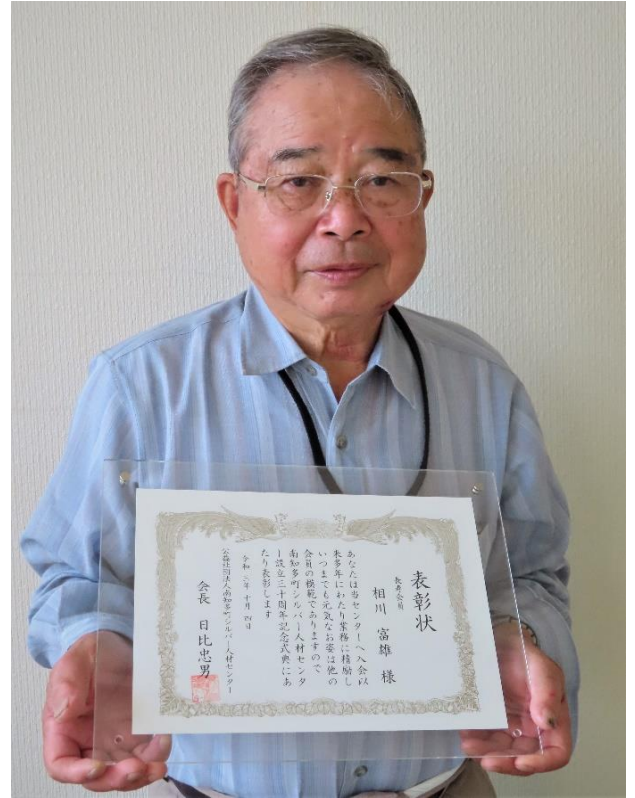 表彰状
長寿会員
相川 富雄 様
あなたは当センターへ入会以
来多年にわたり業務に精励し
いつまでも元気なお姿は他の
会員の模範でありますので
南知多町シルバー人材センタ
ー設立三十周年記念式典にあ
たり表彰します
令和三年十月四日
公益社団法人南知多町シルバー人材センター
会長 日比忠男